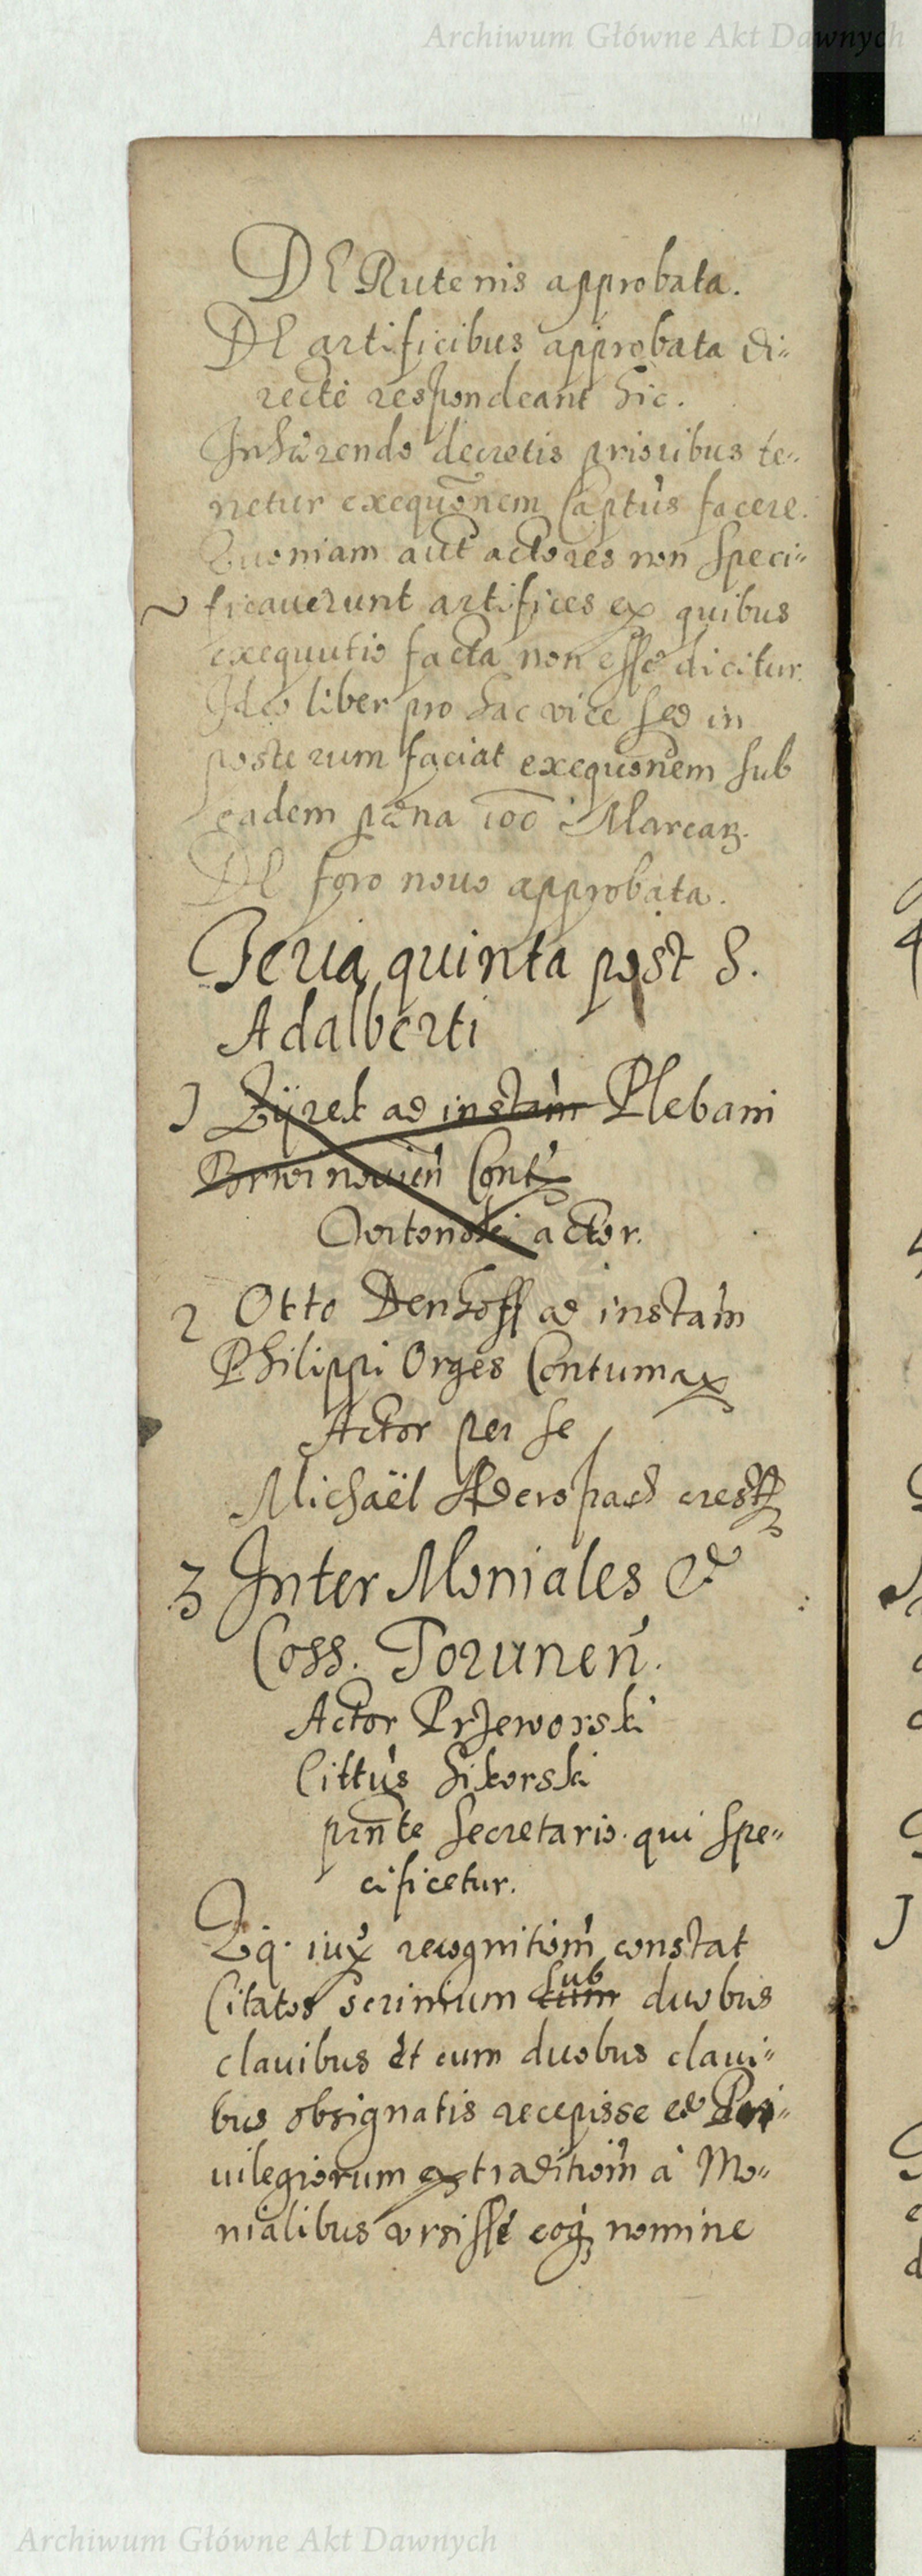 Archiwum Główne Akt Dawnych
DE Rutenis approbata.
DE artificibus approbata di=
recte respondeant hic.
Inhærendo decretis prioribus te=
netur exequõnem Captus facere.
Quoniam aut actores non speci=
ficauerunt artifices ex quibus
exequutio facta non esse dicitur.
Ideo liber pro hac vice sed in
posterum faciat exequõnem sub
eadem pæna 100 Marcar.
DE foro nouo approbata.
Feria quinta post S.
Adalberti
1 Zÿrek ad instam Plebani
Cont
actor.
2 Otto Denhoff ad instam
Philippi Orges Contumax
Actor per se
Michaël
3 Inter Moniales et
Coss. Torunen.
Actor Przeworski
Cittus Sikorski
prñte Secretario qui spe=
cificetur.
Ziq. iux recognitiom constat
Citatos scrinium cum sub duobus
clauibus et cum duobus claui=
bus obsignatis recepisse et Pri=
uilegiorum extraditiom à Mo=
nialibus vrsisse eoq nomine
Archiwum Główne Akt Dawnych